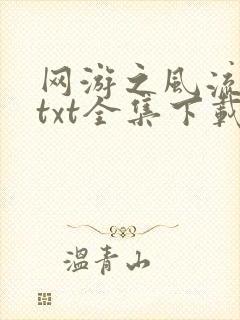 网游之风流
txt全集下载
温青山